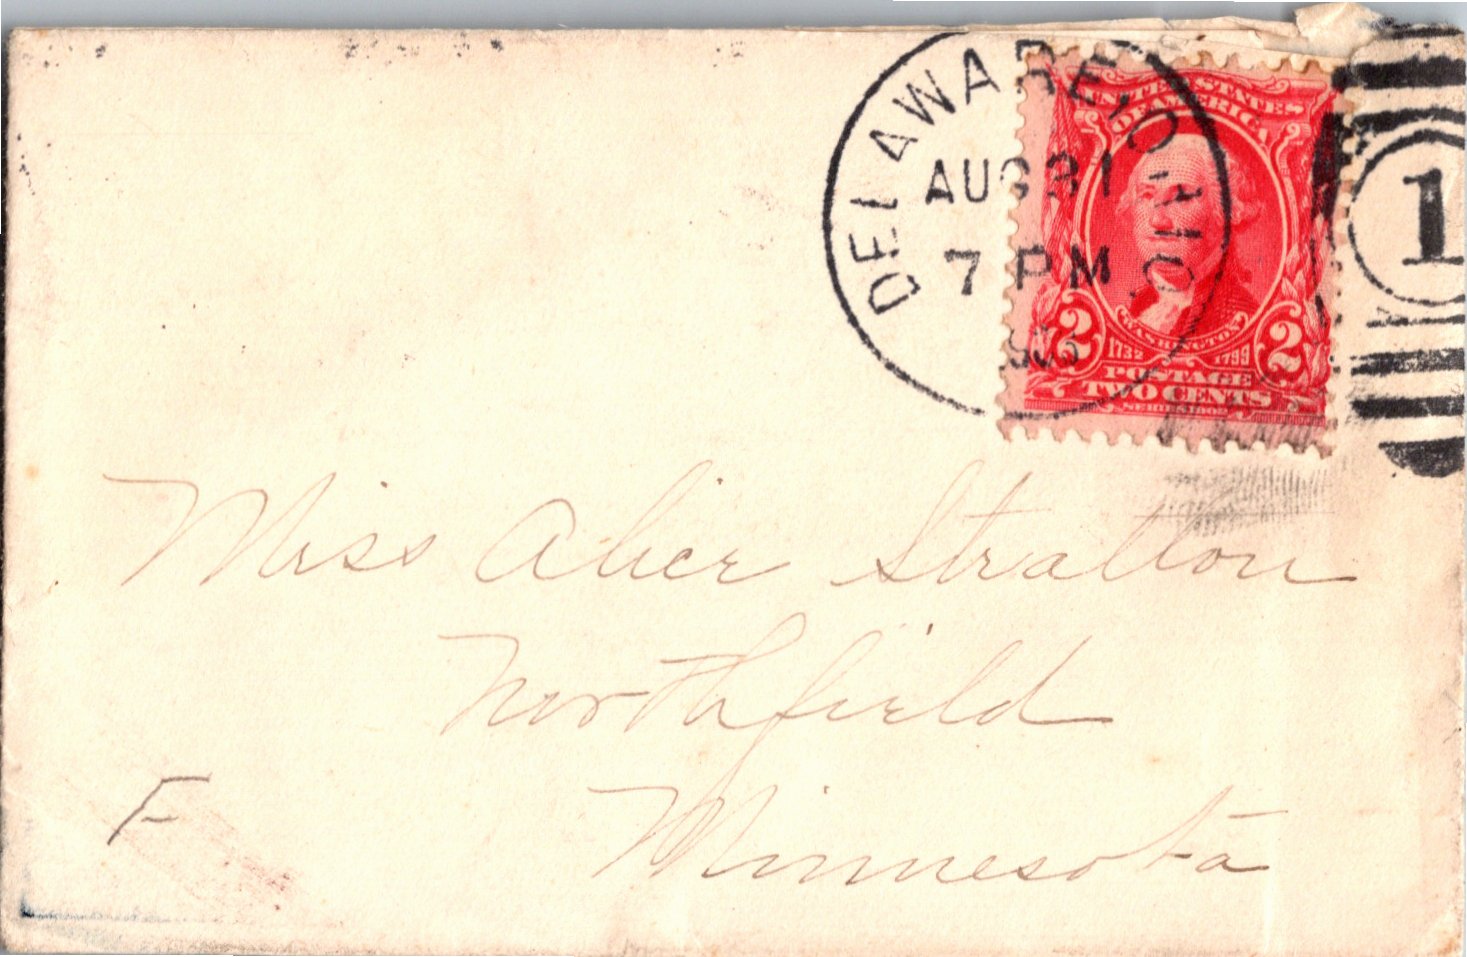 DELAWARE, OHIO
AUG 31
7 PM
UNITED STATES
OF AMERICA
WASHINGTON
1732 1799
2 2
POSTAGE
TWO CENTS
1
Miss Alice Stratton
Northfield
Minnesota
F